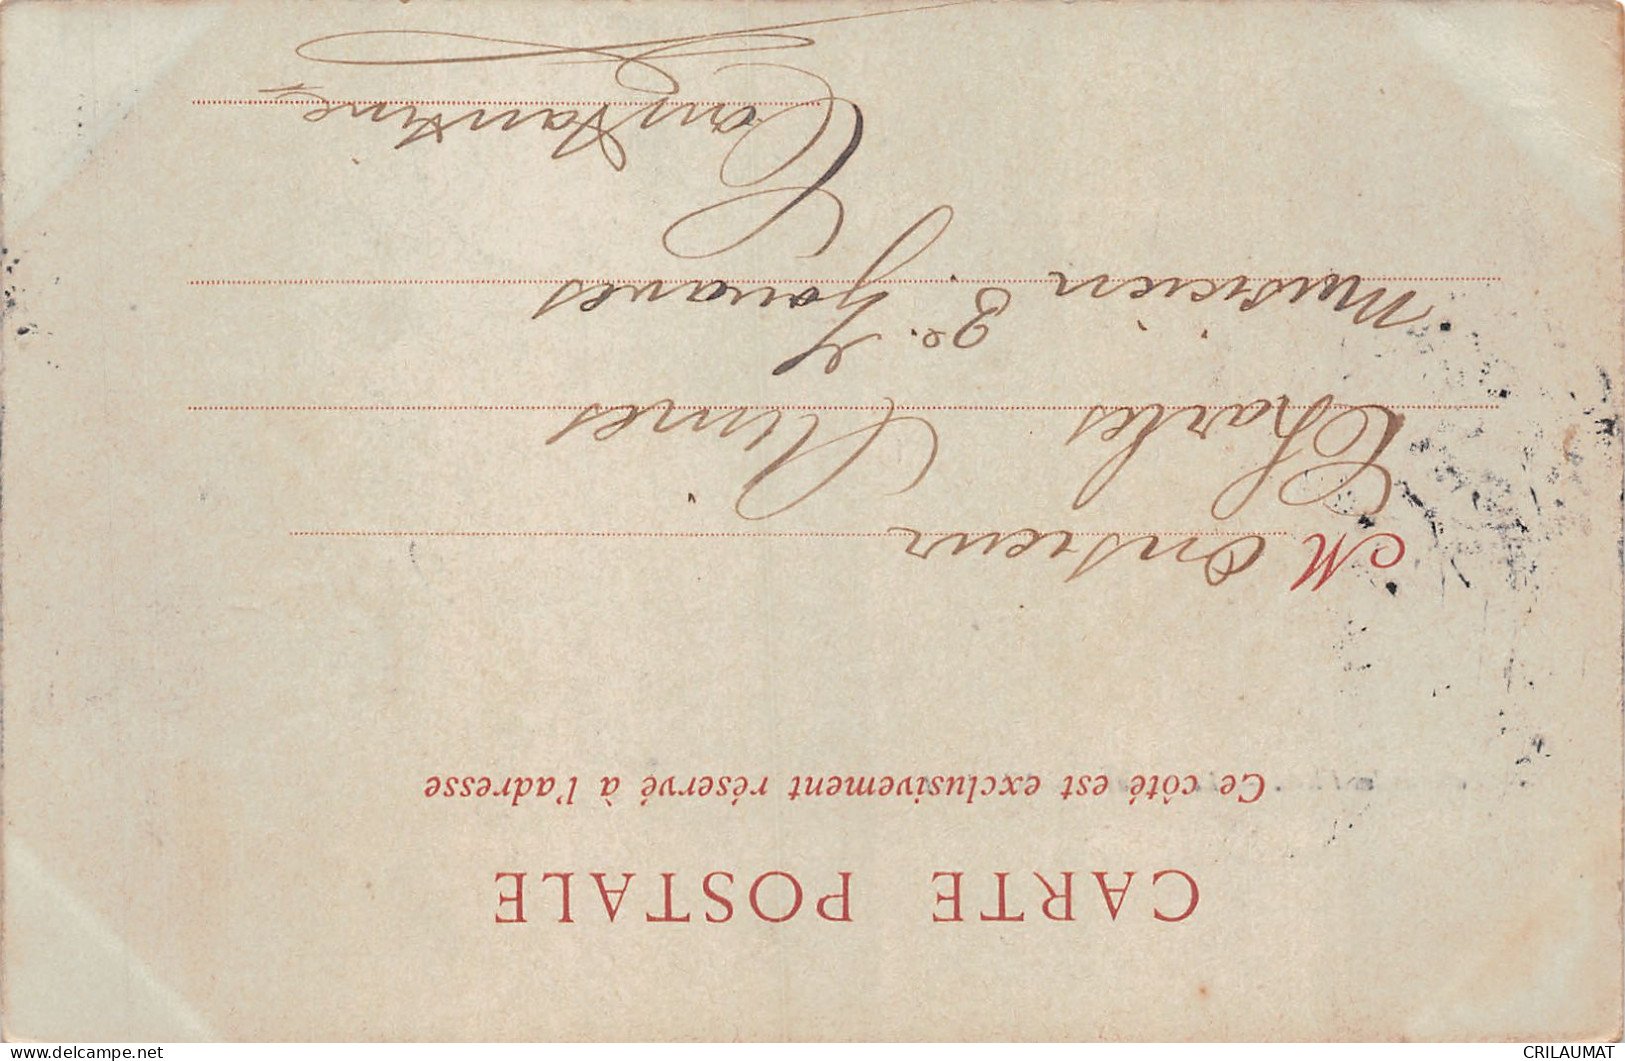 CARTE POSTALE
Ce côté est exclusivement réservé à l'adresse
Monsieur
Charles
Musicien 3e. Zouaves
Constantine
delcampe.net
CRILAUMAT